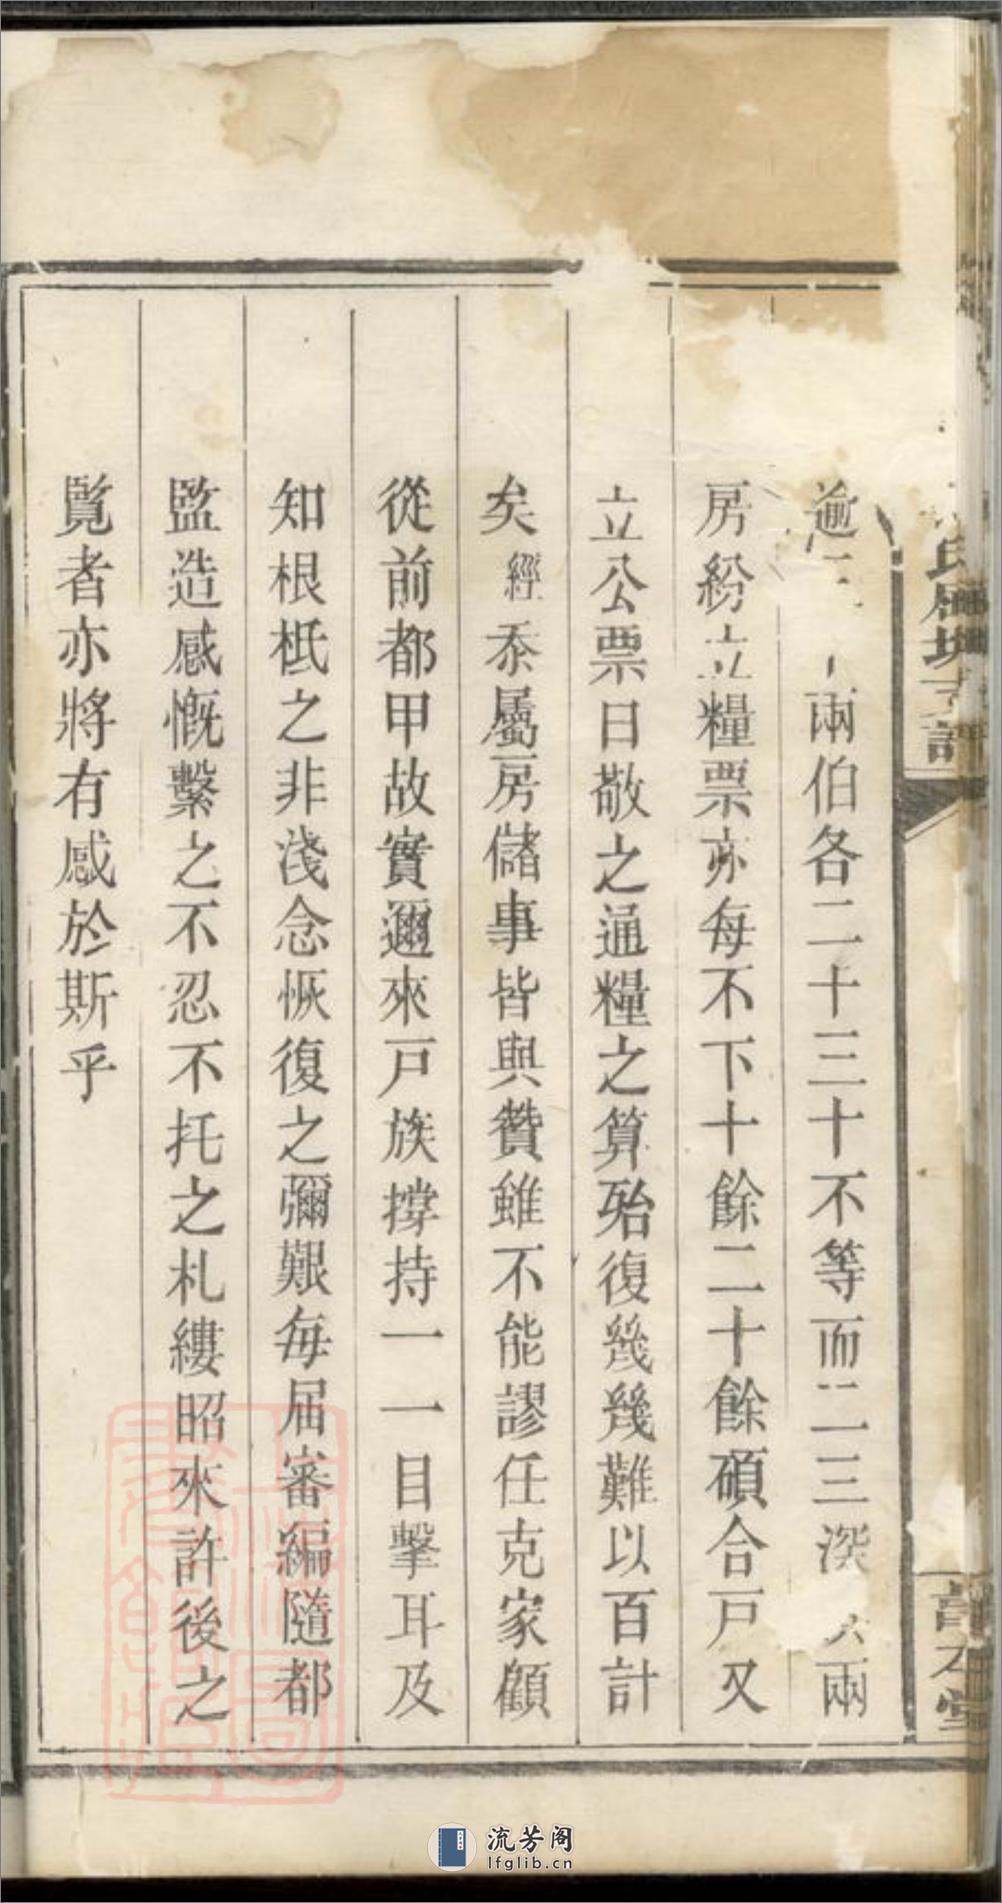 逾二 兩伯各二十三十不等而二三深 兩
房紛立糧票亦每不下十餘二十餘碩合戸又
立公票曰敬之通糧之算殆復幾幾難以百計
矣經忝屬房儲事皆與贊雖不能謬任克家顧
從前都甲故實邇來戸族撐持一一目擊耳及
知根柢之非淺念恢復之彌艱每届審編隨都
監造感慨繫之不忍不托之札縷昭來許後之
覧者亦將有感於斯乎
流芳阁
lfglib.cn